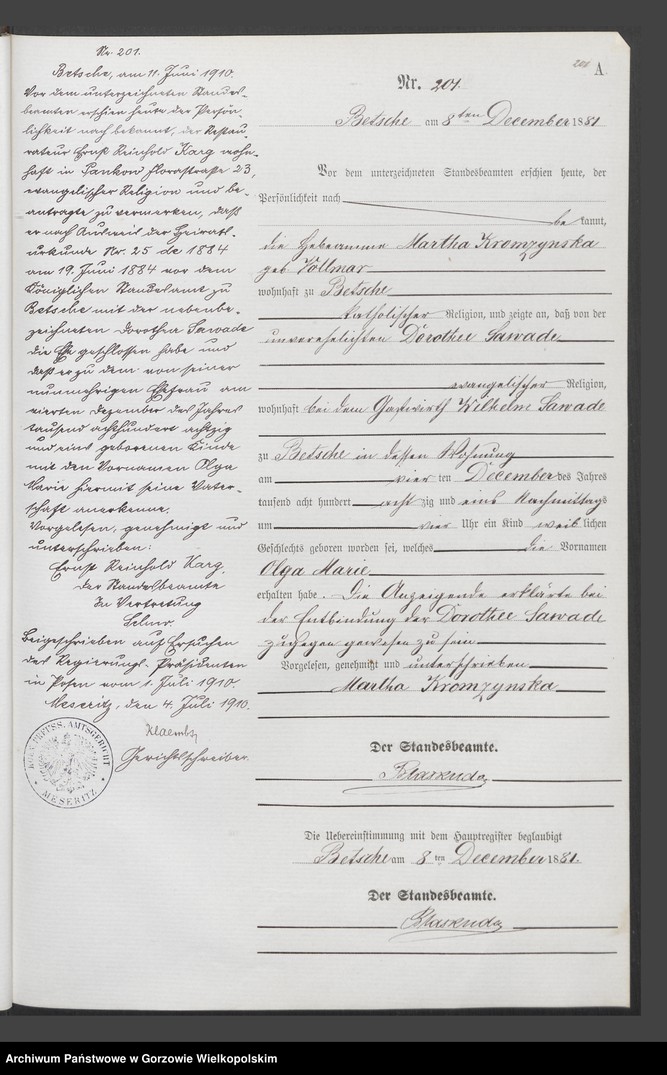 Nr. 201.
Betsche, am 11. Juni 1910.
Vor dem unterzeichneten Standes-
beamten erschien heute der Persön-
lichkeit nach bekannt, der Restau-
rateur Ernst Reinhold Karg wohn-
haft in Pankow Florastraße 23,
evangelischer Religion und be-
antragte zu vermerken, daß
er nach Ausweis der Heirats-
urkunde Nr. 25 de 1884
am 19. Juni 1884 vor dem
Königlichen Standesamt zu
Betsche mit der nebenbe-
zeichneten Dorothea Sawade
die Ehe geschlossen habe und
daß er zu dem von seiner
nunmehrigen Ehefrau am
vierten Dezember des Jahres
tausend achthundert achtzig
und eins geborenen Kinde
mit den Vornamen Olga
Marie hiermit seine Vater-
schaft anerkenne.
Vorgelesen, genehmigt und
unterschrieben:
Ernst Reinhold Karg.
Der Standesbeamte
In Vertretung
Beigeschrieben auf Ersuchen
des Regierungs-Präsidenten
in Posen vom 1. Juli 1910.
Meseritz, den 4. Juli 1910.
Gerichtsschreiber.
KÖN. PREUSS. AMTSGERICHT
* MESERITZ *
A.
Nr. 201.
Betsche am 8ten December 1881
Vor dem unterzeichneten Standesbeamten erschien heute, der
Persönlichkeit nach
be kannt,
die Hebeamme Martha Kromzynska
geb. Vollmar
wohnhaft zu Betsche
katholischer Religion, und zeigte an, daß von der
unverehelichten Dorothee Sawade
evangelischer Religion,
wohnhaft bei dem Gastwirth Wilhelm Sawade
zu Betsche in dessen Wohnung
am vier ten December des Jahres
tausend acht hundert acht zig und eins Nachmittags
um vier Uhr ein Kind weib lichen
Geschlechts geboren worden sei, welches die Vornamen
Olga Marie
erhalten habe. Die Anzeigende erklärte bei
der Entbindung der Dorothee Sawade
zugegen gewesen zu sein
Vorgelesen, genehmigt und unterschrieben
Martha Kromzynska
Der Standesbeamte.
Die Uebereinstimmung mit dem Hauptregister beglaubigt
Betsche am 8 ten December 1881.
Der Standesbeamte.
Archiwum Państwowe w Gorzowie Wielkopolskim